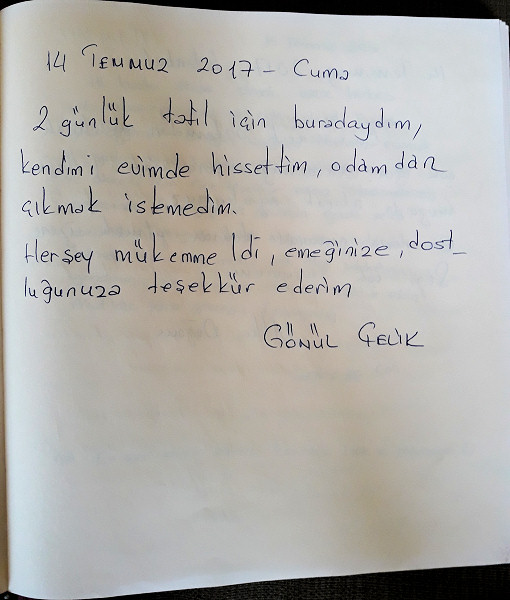 14 TEMMUZ 2017 - Cuma
2 günlük tatil için buradaydım,
kendimi evimde hissettim, odamdan
çıkmak istemedim.
Herşey mükemmeldi, emeğinize, dost_
luğunuza teşekkür ederim
GÖNÜL ÇELİK